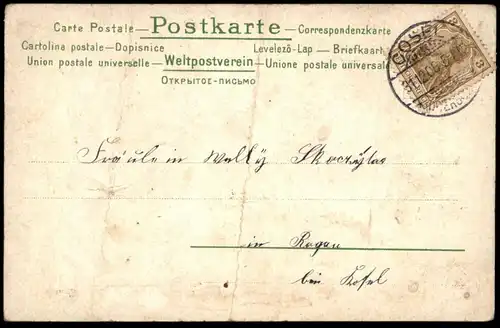 Carte Postale — Postkarte — Correspondenzkarte
Cartolina postale — Dopisnice Levelező-Lap — Briefkaart
Union postale universelle — Weltpostverein — Unione postale universale
ОТКРЫТОЕ-ПИСЬМО
COSEL
3
Fräulein Wally
in Rogau
bei Kosel